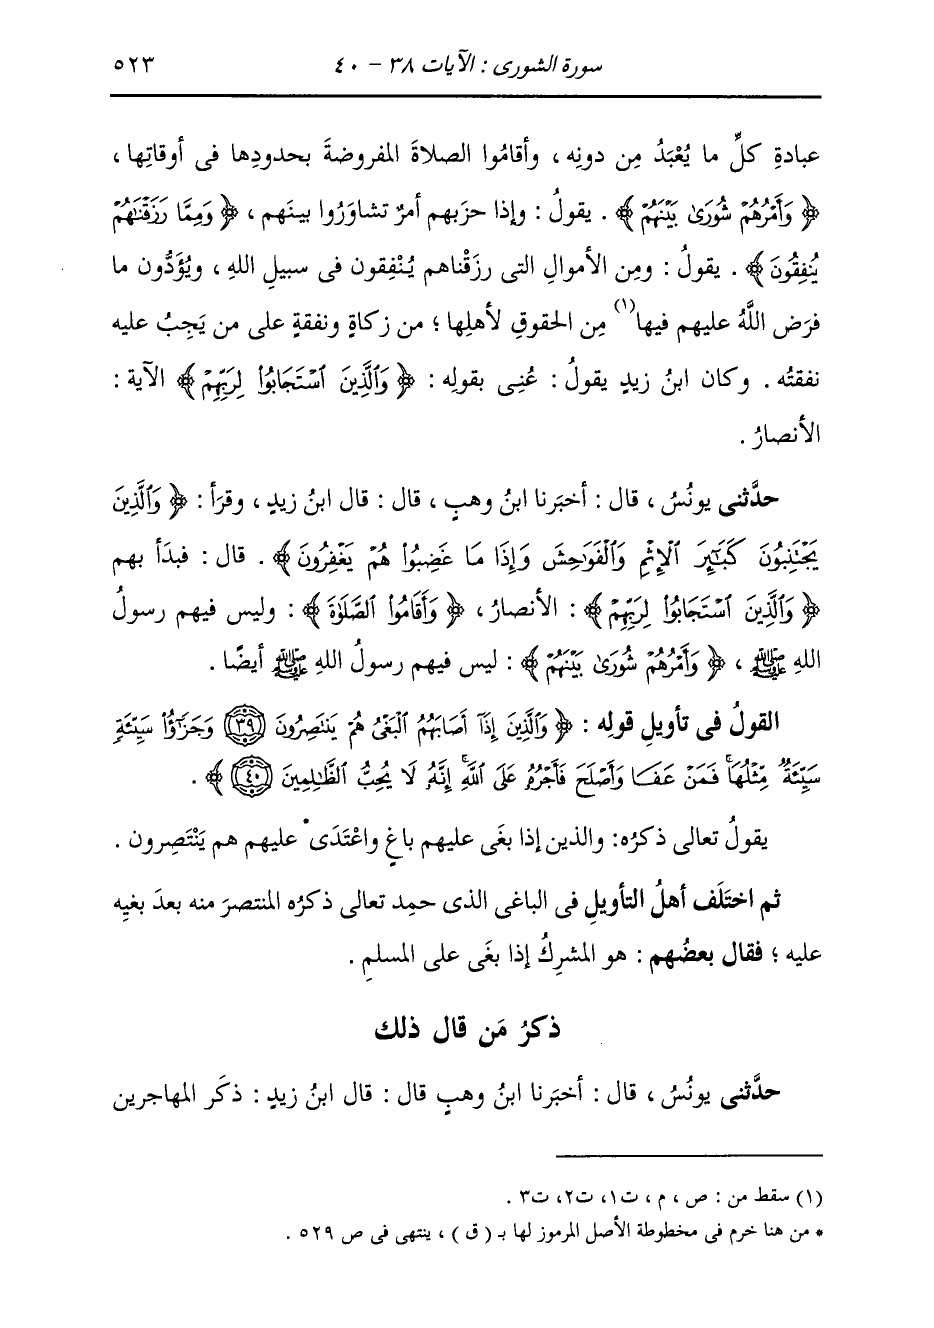 سورة الشورى : الآيات ٣٨ - ٤٠ ٥٢٣
عبادةِ كلِّ ما يُعْبَدُ مِن دونِه ، وأقامُوا الصلاةَ المفروضةَ بحدودِها فى أوقاتِها ،
﴿ وَأَمْرُهُمْ شُورَىٰ بَيْنَهُمْ ﴾ . يقولُ : وإذا حزَبهم أمرٌ تشاوَرُوا بينَهم ، ﴿ وَمِمَّا رَزَقْنَٰهُمْ
يُنفِقُونَ ﴾ . يقولُ : ومِن الأموالِ التى رزَقْناهم يُنْفِقون فى سبيلِ اللهِ ، ويُؤَدُّون ما
فرَض اللَّهُ عليهم فيها(١) مِن الحقوقِ لأهلِها ؛ من زكاةٍ ونفقةٍ على من يَجِبُ عليه
نفقتُه . وكان ابنُ زيدٍ يقولُ : عُنِى بقولِه : ﴿ وَٱلَّذِينَ ٱسْتَجَابُوا۟ لِرَبِّهِمْ ﴾ الآية :
الأنصارُ .
حدَّثنى يونُسُ ، قال : أخبَرنا ابنُ وهبٍ ، قال : قال ابنُ زيدٍ ، وقرَأ : ﴿ وَٱلَّذِينَ
يَجْتَنِبُونَ كَبَٰٓئِرَ ٱلْإِثْمِ وَٱلْفَوَٰحِشَ وَإِذَا مَا غَضِبُوا۟ هُمْ يَغْفِرُونَ ﴾ . قال : فبدَأ بهم
﴿ وَٱلَّذِينَ ٱسْتَجَابُوا۟ لِرَبِّهِمْ ﴾ : الأنصارُ ، ﴿ وَأَقَامُوا۟ ٱلصَّلَوٰةَ ﴾ : وليس فيهم رسولُ
اللهِ ﷺ ، ﴿ وَأَمْرُهُمْ شُورَىٰ بَيْنَهُمْ ﴾ : ليس فيهم رسولُ اللهِ ﷺ أيضًا .
القولُ فى تأويلِ قولِه : ﴿ وَٱلَّذِينَ إِذَآ أَصَابَهُمُ ٱلْبَغْىُ هُمْ يَنتَصِرُونَ ٣٩ وَجَزَٰٓؤُا۟ سَيِّئَةٍ
سَيِّئَةٌ مِّثْلُهَا ۖ فَمَنْ عَفَا وَأَصْلَحَ فَأَجْرُهُۥ عَلَى ٱللَّهِ ۚ إِنَّهُۥ لَا يُحِبُّ ٱلظَّٰلِمِينَ ٤٠ ﴾ .
يقولُ تعالى ذكرُه: والذين إذا بغَى عليهم باغٍ واعْتَدَى* عليهم هم يَنْتَصِرون .
ثم اختَلَف أهلُ التأويلِ فى الباغى الذى حمِد تعالى ذكرُه المنتصرَ منه بعدَ بغيِه
عليه ؛ فقال بعضُهم : هو المشرِكُ إذا بغَى على المسلمِ .
ذكرُ مَن قال ذلك
حدَّثنى يونُسُ ، قال : أخبَرنا ابنُ وهبٍ قال : قال ابنُ زيدٍ : ذكَر المهاجرين
(١) سقط من : ص ، م ، ت١، ت٢، ت٣ .
* من هنا خرم فى مخطوطة الأصل المرموز لها بـ ( ق ) ، ينتهى فى ص ٥٢٩ .